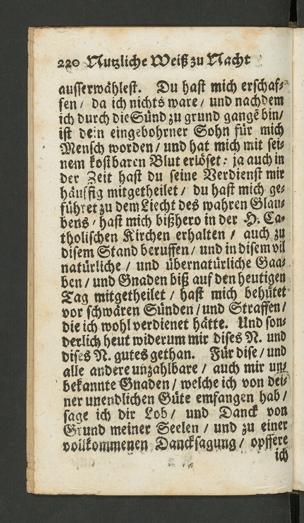 220 Nutzliche Weiß zu Nacht
ausserwählest. Du hast mich erschaf-
fen / da ich nichts ware / und nachdem
ich durch die Sünd zu grund gangẽ bin /
ist dein eingebohrner Sohn für mich
Mensch worden / und hat mich mit sei-
nem kostbaren Blut erlöset: ja auch in
der Zeit hast du seine Verdienst mir
häuffig mitgetheilet / du hast mich ge-
führet zu dem Liecht des wahren Glau-
bens / hast mich bißhero in der H. Ca-
tholischen Kirchen erhalten / auch zu
disem Stand beruffen / und in disem vil
natürliche / und übernatürliche Gaa-
ben / und Gnaden biß auf den heutigen
Tag mitgetheilet / hast mich behütet
vor schwären Sünden / und Straffen /
die ich wohl verdienet hätte. Und son-
derlich heut widerum mir dises N. und
dises N. gutes gethan. Für dise / und
alle andere unzahlbare / auch mir un-
bekannte Gnaden / welche ich von dei-
ner unendlichen Güte empfangen hab /
sage ich dir Lob / und Danck von
Grund meiner Seelen / und zu einer
vollkommenen Dancksagung / opffere
ich